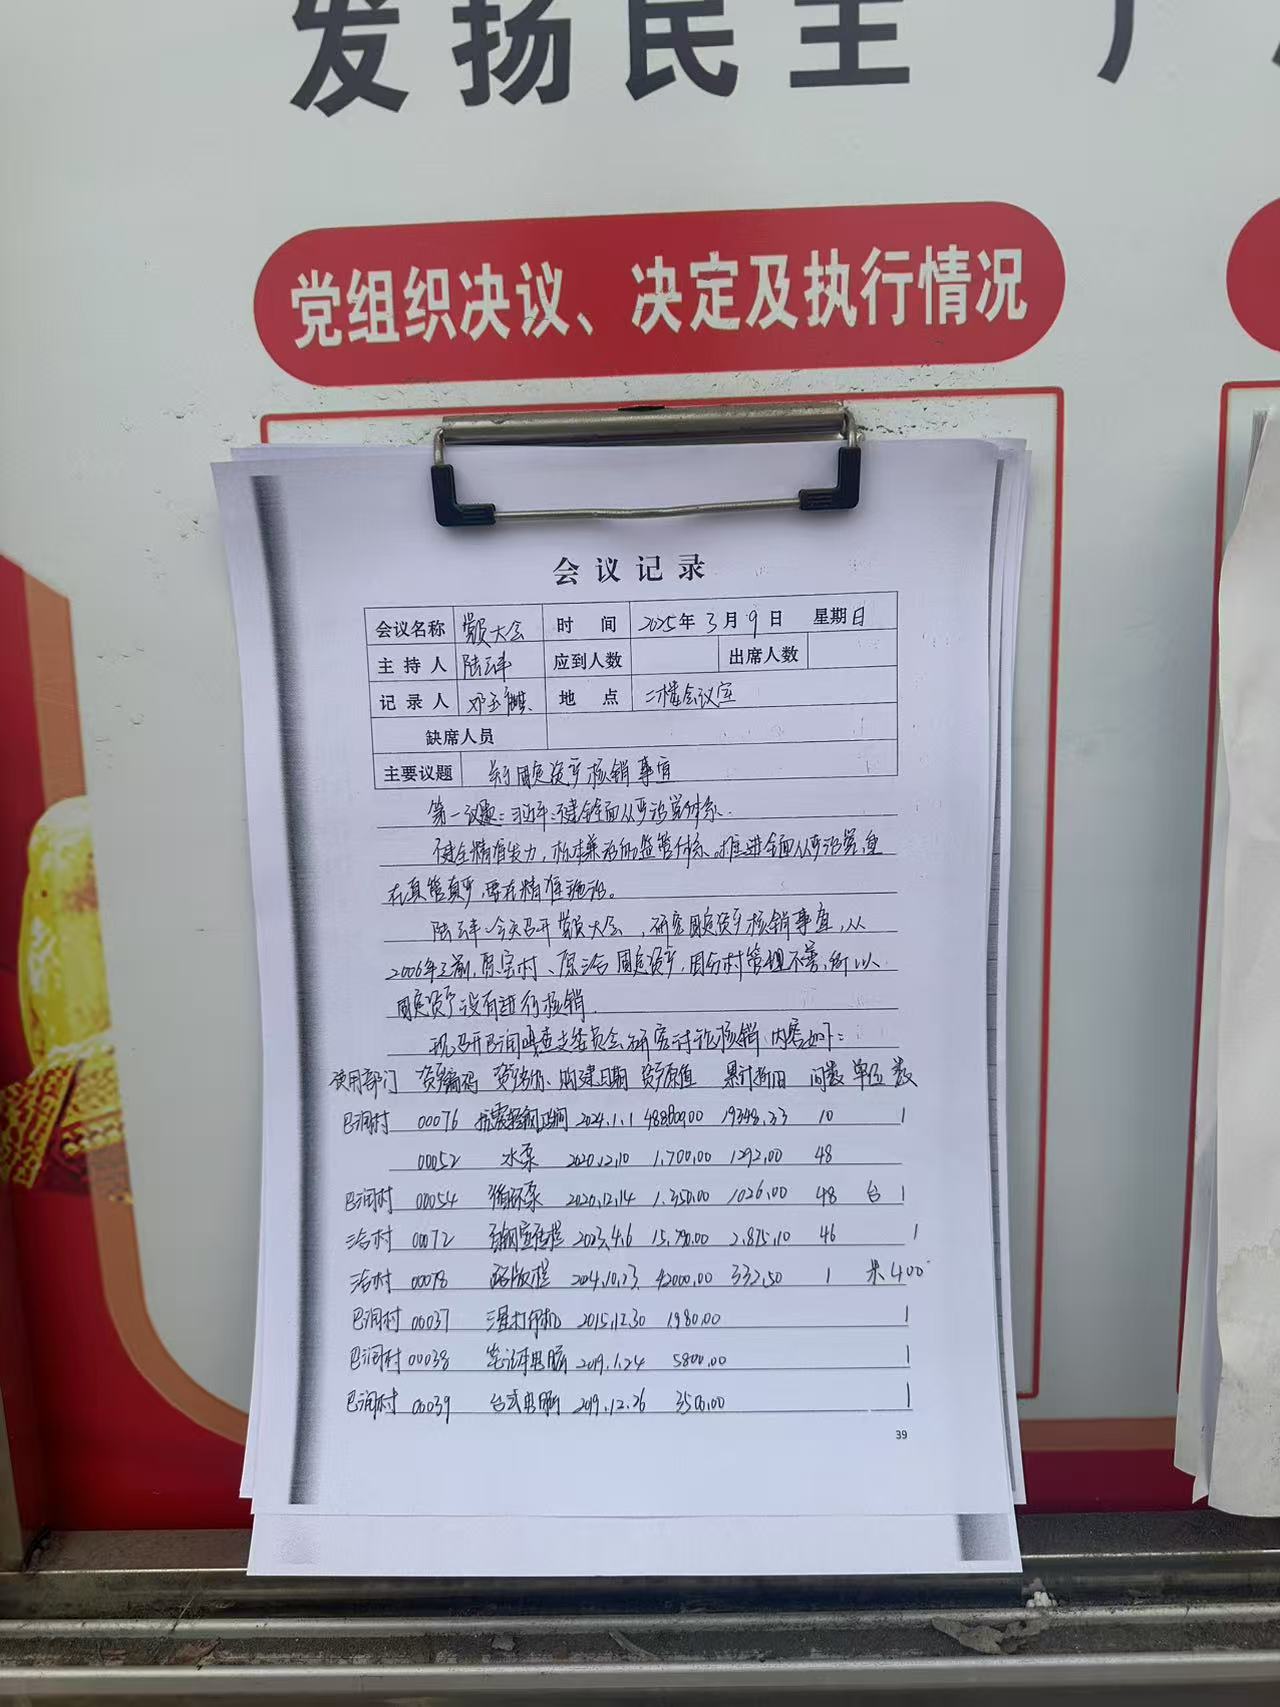 发扬民主
党组织决议、决定及执行情况
会议记录
会议名称 党员大会 时间 2025年3月9日 星期日
主持人 陆云丰 应到人数 出席人数
记录人 邓玉麒 地点 二楼会议室
缺席人员
主要议题 关于固定资产核销事宜
第一议题：习近平：健全全面从严治党体系.
健全精准发力，标本兼治的监管体系。推进全面从严治党，重
在真管真严，要在精准施治。
陆云丰：今天召开党员大会，研究固定资产核销事宜，从
2006年之前，原 村、原三合固定资产，因分村管理不善，所以
固定资产没有进行核销.
现召开巴润 查支委员会研究讨论核销，内容如下：
使用部门 资产编码 资产名称、购建日期 资产原值 累计折旧 间数 单位 数
巴润村 00076 抗震轻钢 间 2024.1.1 488800.00 19348.33 10 1
00052 水泵 2020.12.10 1,700.00 1292.00 48
巴润村 00054 循环泵 2020.12.14 1.350.00 1026.00 48 台 1
三合村 00072 宣传栏 2023.4.6 15,790.00 2,875.10 46 1
三合村 00078 栏 2024.10.23 42000.00 332.50 1 米 400
巴润村 00037 三星打印机 2015.12.30 1980.00 1
巴润村 00038 笔记本电脑 2019.1.24 5800.00 1
巴润村 00039 台式电脑 2019.12.26 3500.00 1
39